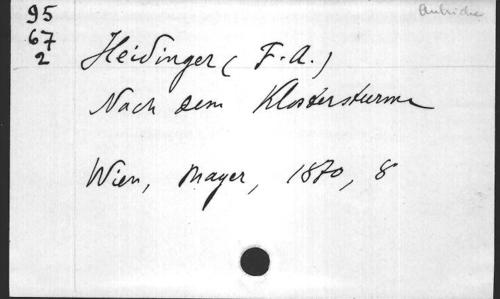 95
67
2
Autriche
Heidinger ( F. A. )
Nach dem Klostersturme
Wien, Mayer, 1870, 8